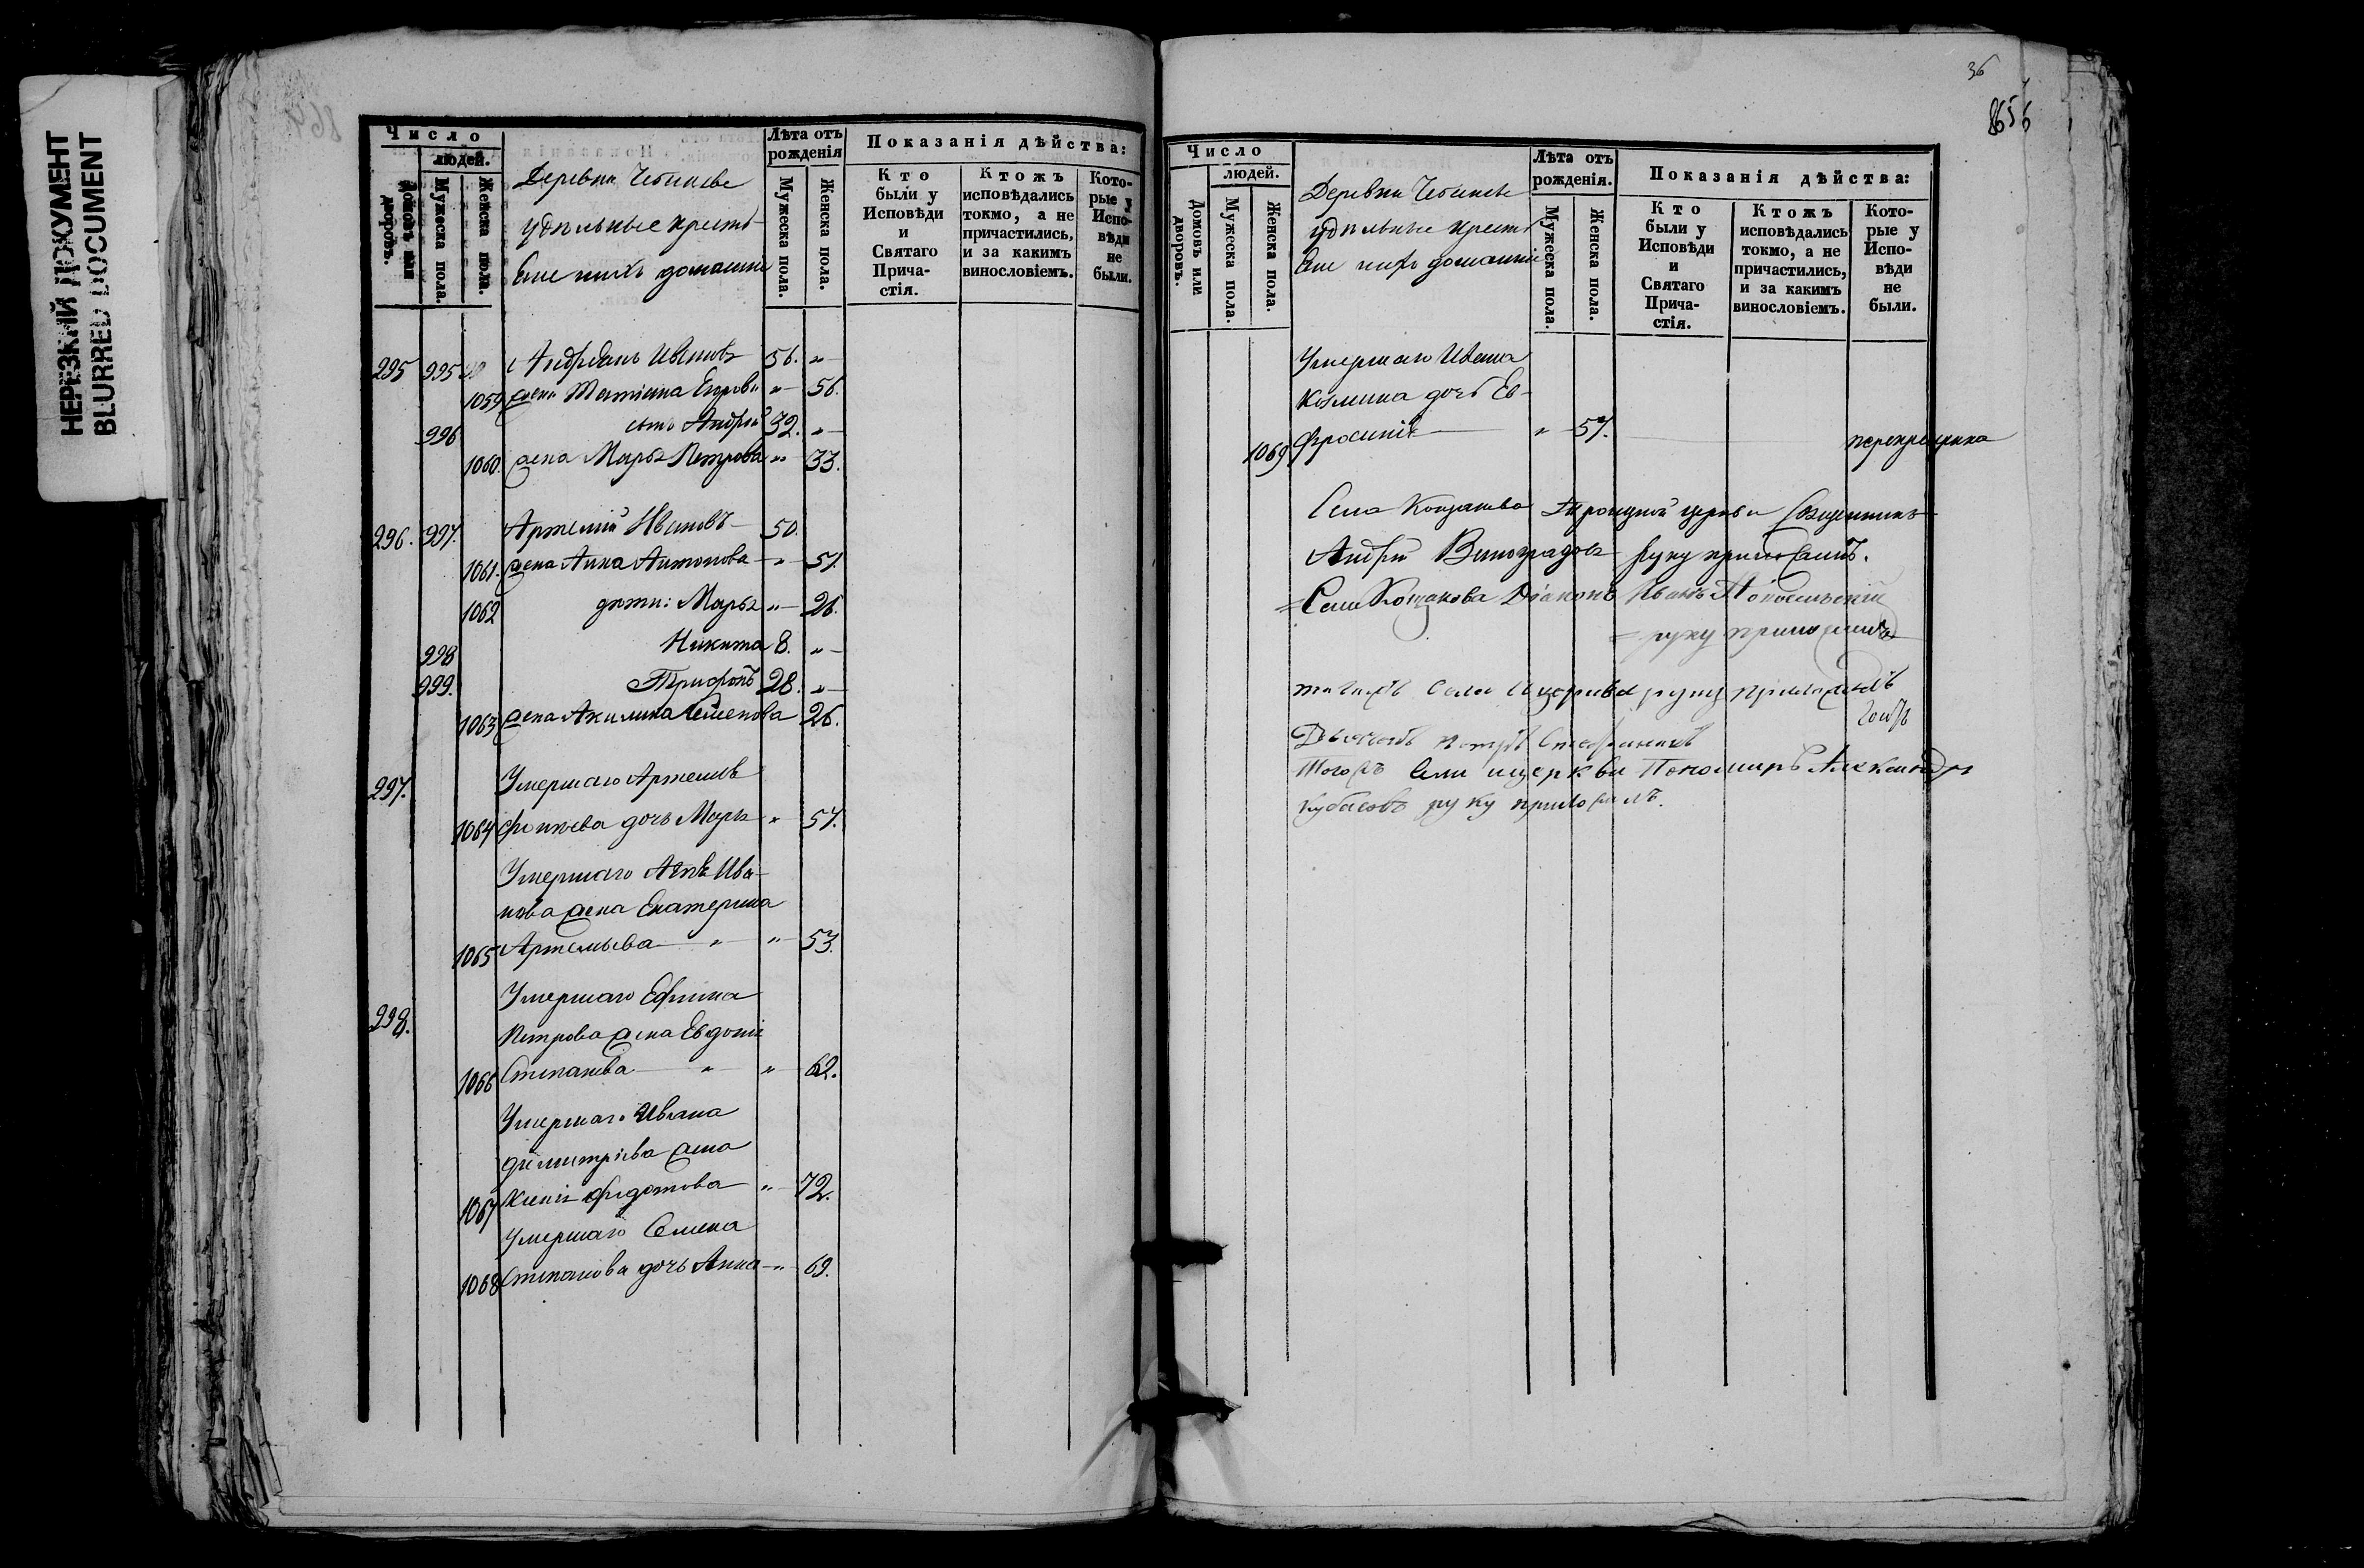 НЕРЕЗКИЙ ДОКУМЕНТ
BLURRED DOCUMENT
Число
людей.
Домовъ или дворовъ.
Мужеска пола.
Женска пола.
Деревни
удѣльные крестья
не и ихъ домашніе
Лѣта отъ рожденія
Мужеска пола.
Женска пола.
Показанія дѣйства:
Кто были у Исповѣди и Святаго Причастія.
Ктожъ исповѣдались токмо, а не причастились, и за какимъ винословіемъ.
Которые у Исповѣди не были.
295 995 Андреанъ Ивановъ 56. "
1059 жена Татіана Егорова " 56.
996 сынъ Андрей 32. "
1060. жена Марья Петрова " 33.
296. 997. Артемій Ивановъ 50.
1061. жена Анна Антонова " 51.
1062 дѣти: Марья " 26.
998 Никита 8. "
999. Трифонъ 28. "
1063 жена Акилина Семенова 26.
297. Умершаго Артемія
1064 дочь Марья " 57.
Умершаго Ива-
нова жена Екатерина
1065 Артемьева " " 53.
298. Умершаго Ефима
Петрова жена Евдокія
1066 Степанова " " 62.
Умершаго Ивана
Димитріева жена
1067 Ксенія Федотова " 72.
Умершаго Семена
1068 Степанова дочь Анна " 69.
36
8656
Число
людей.
Домовъ или дворовъ.
Мужеска пола.
Женска пола.
Деревни
удѣльные крестья
не и ихъ домашніе
Лѣта отъ рожденія.
Мужеска пола.
Женска пола.
Показанія дѣйства:
Кто были у Исповѣди и Святаго Причастія.
Ктожъ исповѣдались токмо, а не причастились, и за какимъ винословіемъ.
Которые у Исповѣди не были.
Умершаго Ивана
Козмина дочь Ев-
1069 фросинія " 57.
Села Троицкой церкви Священникъ
Андрей Виноградовъ руку приложилъ.
Села Діаконъ Иванъ
руку приложилъ
Села и церкви руку приложилъ
Дьячокъ Петръ
Тогожъ Села и церкви Пономарь Александръ
руку приложилъ.